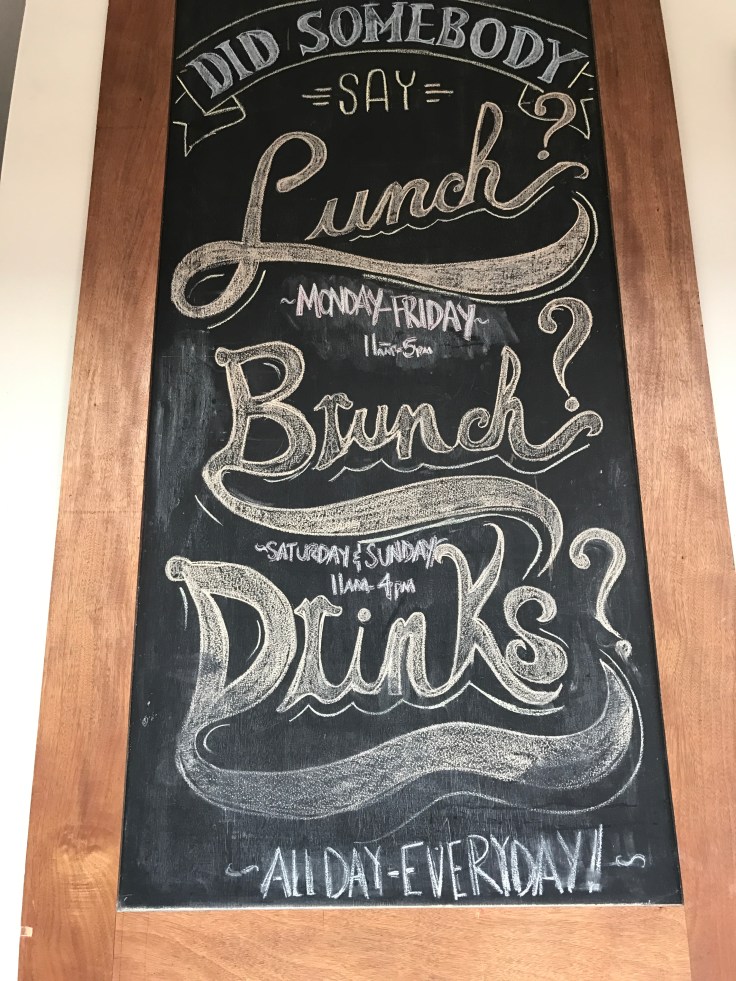 DID SOMEBODY
=SAY=
Lunch?
~MONDAY-FRIDAY~
11am-5pm
Brunch?
~SATURDAY & SUNDAY~
11AM-4pm
Drinks?
~ALL DAY-EVERYDAY!~